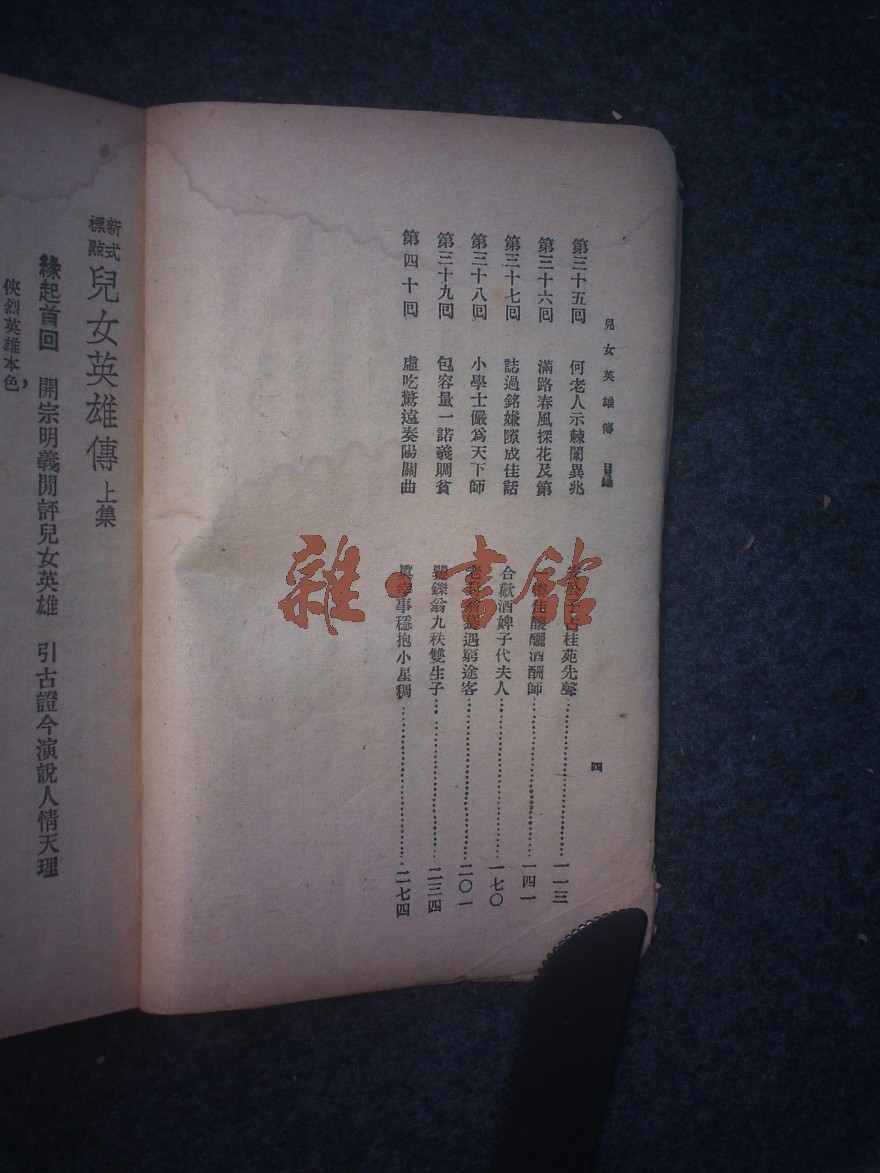 兒女英雄傳 目錄 四
第三十五回 何老人示棘闈異兆 桂苑先聲 一一三
第三十六回 滿路春風探花及第 釃酒酬師 一四一
第三十七回 誌過銘嫌隙成佳話 合歡酒婢子代夫人 一七〇
第三十八回 小學士儼爲天下師 遇窮途客 二〇一
第三十九回 包容量一諾義賙貧 鑠翁九秩雙生子 二三四
第四十回 虛吃驚遠奏陽關曲 事穩抱小星稠 二七四
新式標點 兒女英雄傳 上集
緣起首回 開宗明義閒評兒女英雄 引古證今演說人情天理
俠烈英雄本色，
雜·書館